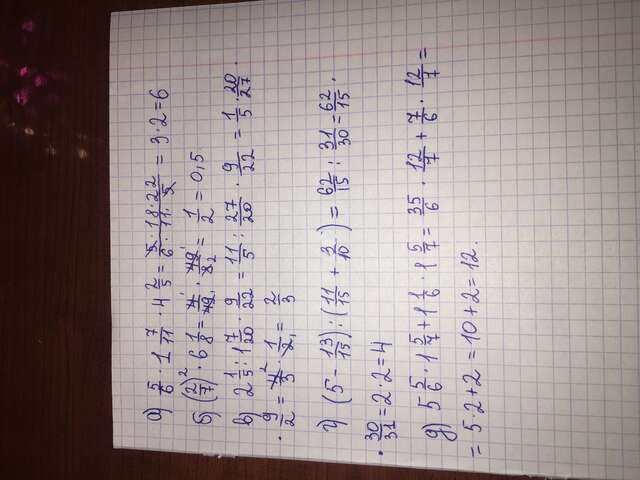 а) 5/6 · 1 7/11 · 4 2/5 = 5 · 18 · 22 / 6 · 11 · 5 = 3 · 2 = 6
б) (2/7)² · 6 1/8 = 4/49 · 49/8 = 1/2 = 0,5
в) 2 1/5 : 1 7/20 · 9/22 = 11/5 : 27/20 · 9/22 = 1/5 · 20/27 ·
· 9/2 = 4/3 · 1/2 = 2/3
г) (5 - 13/15) : (11/15 + 3/10) = 62/15 : 31/30 = 62/15 ·
· 30/31 = 2 · 2 = 4
д) 5 5/6 · 1 5/7 + 1 1/6 · 1 5/7 = 35/6 · 12/7 + 7/6 · 12/7 =
= 5 · 2 + 2 = 10 + 2 = 12.